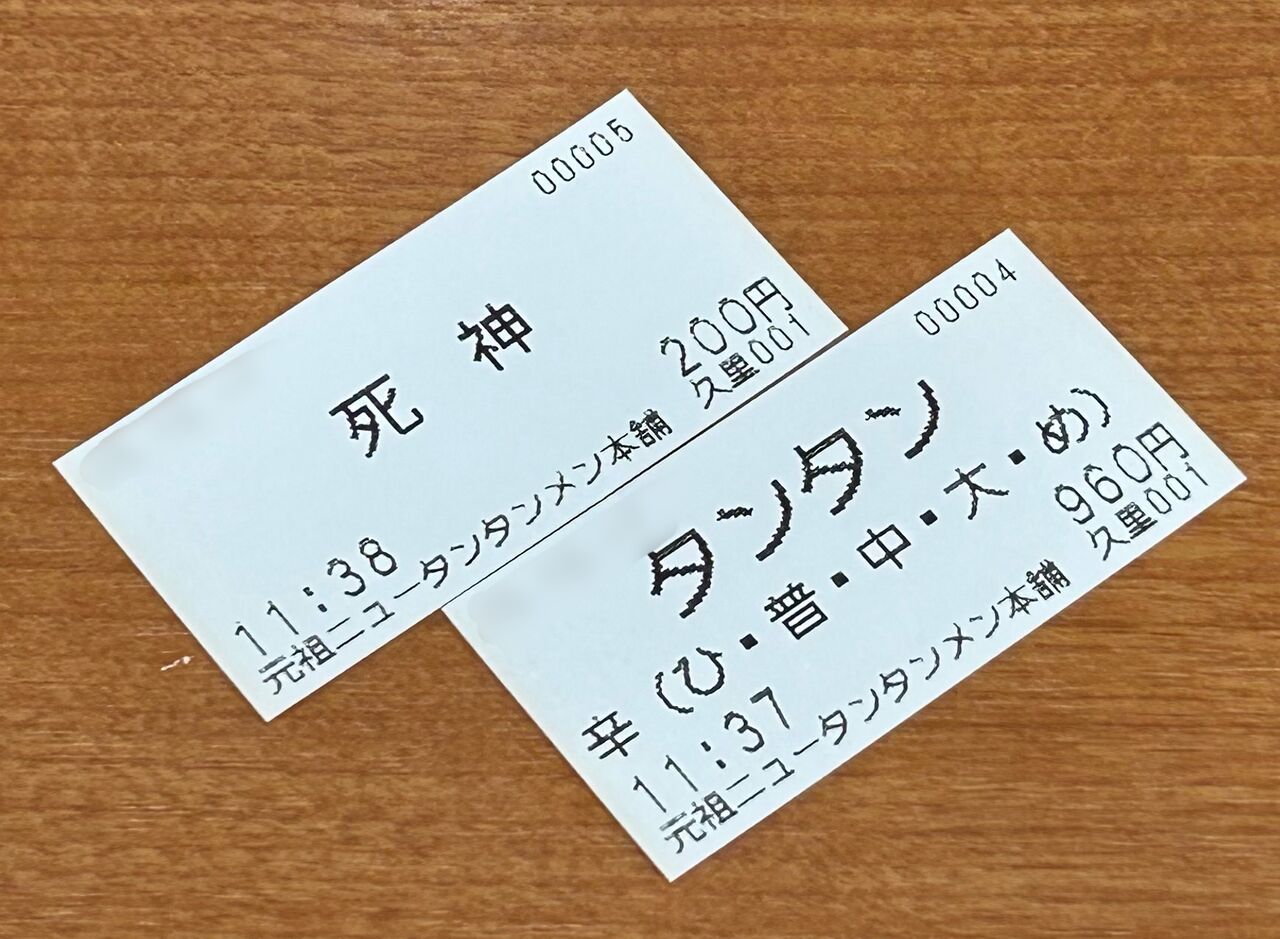 00005
死神
200円
11:38
久里001
元祖ニュータンタンメン本舗
00004
タンタン
辛(ひ・普・中・大・め)
960円
11:37
久里001
元祖ニュータンタンメン本舗